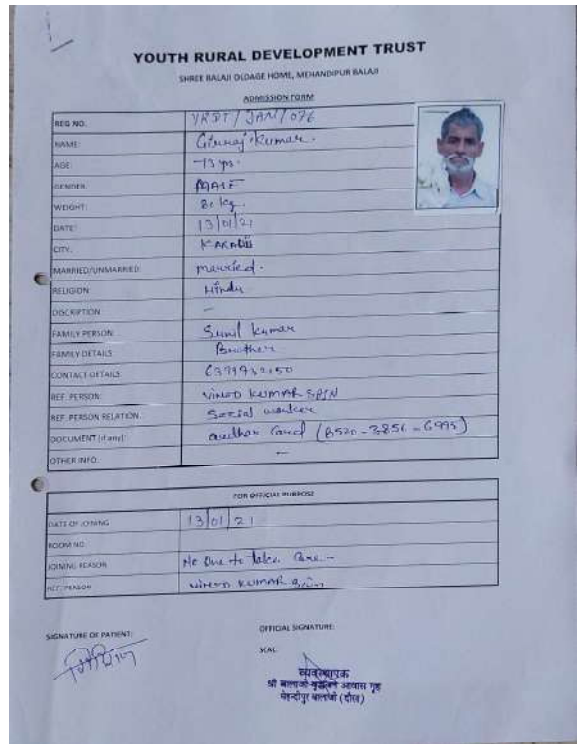 YOUTH RURAL DEVELOPMENT TRUST
SHREE BALAJI OLDAGE HOME, MEHANDIPUR BALAJI
ADMISSION FORM
REG NO. YRDT/JAN/076
NAME: Kumar.
AGE: 73 yrs.
GENDER: MALE
WEIGHT: 80 kg.
DATE: 13/01/21
CITY:
MARRIED/UNMARRIED: married.
RELIGION: Hindu
DISCRIPTION —
FAMILY PERSON: Sunil Kumar
FAMILY DETAILS Brother
CONTACT DETAILS
REF. PERSON: VINOD KUMAR
REF. PERSON RELATION: Social worker
DOCUMENT (if any): Card
OTHER INFO. —
FOR OFFICIAL PURPOSE
DATE OF JOINING 13/01/21
ROOM NO.
JOINING REASON No One to take Care -
REF. PERSON VINOD KUMAR
SIGNATURE OF PATIENT:
OFFICIAL SIGNATURE:
SEAL
व्यवस्थापक
श्री बालाजी आवास गृह
मेहन्दीपुर बालाजी (दौसा)